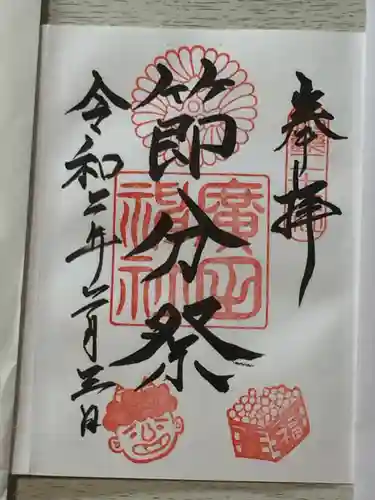 奉拝
節分祭
廣田神社
令和二年二月三日
福